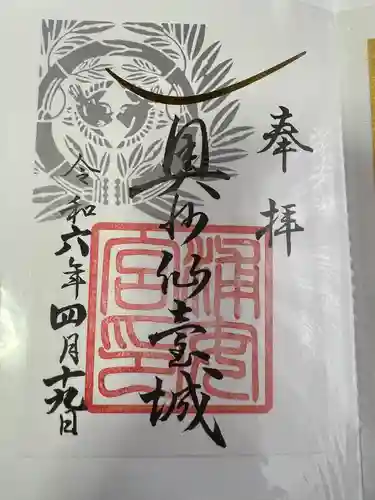 奉拝
奥州仙臺城
令和六年四月十九日